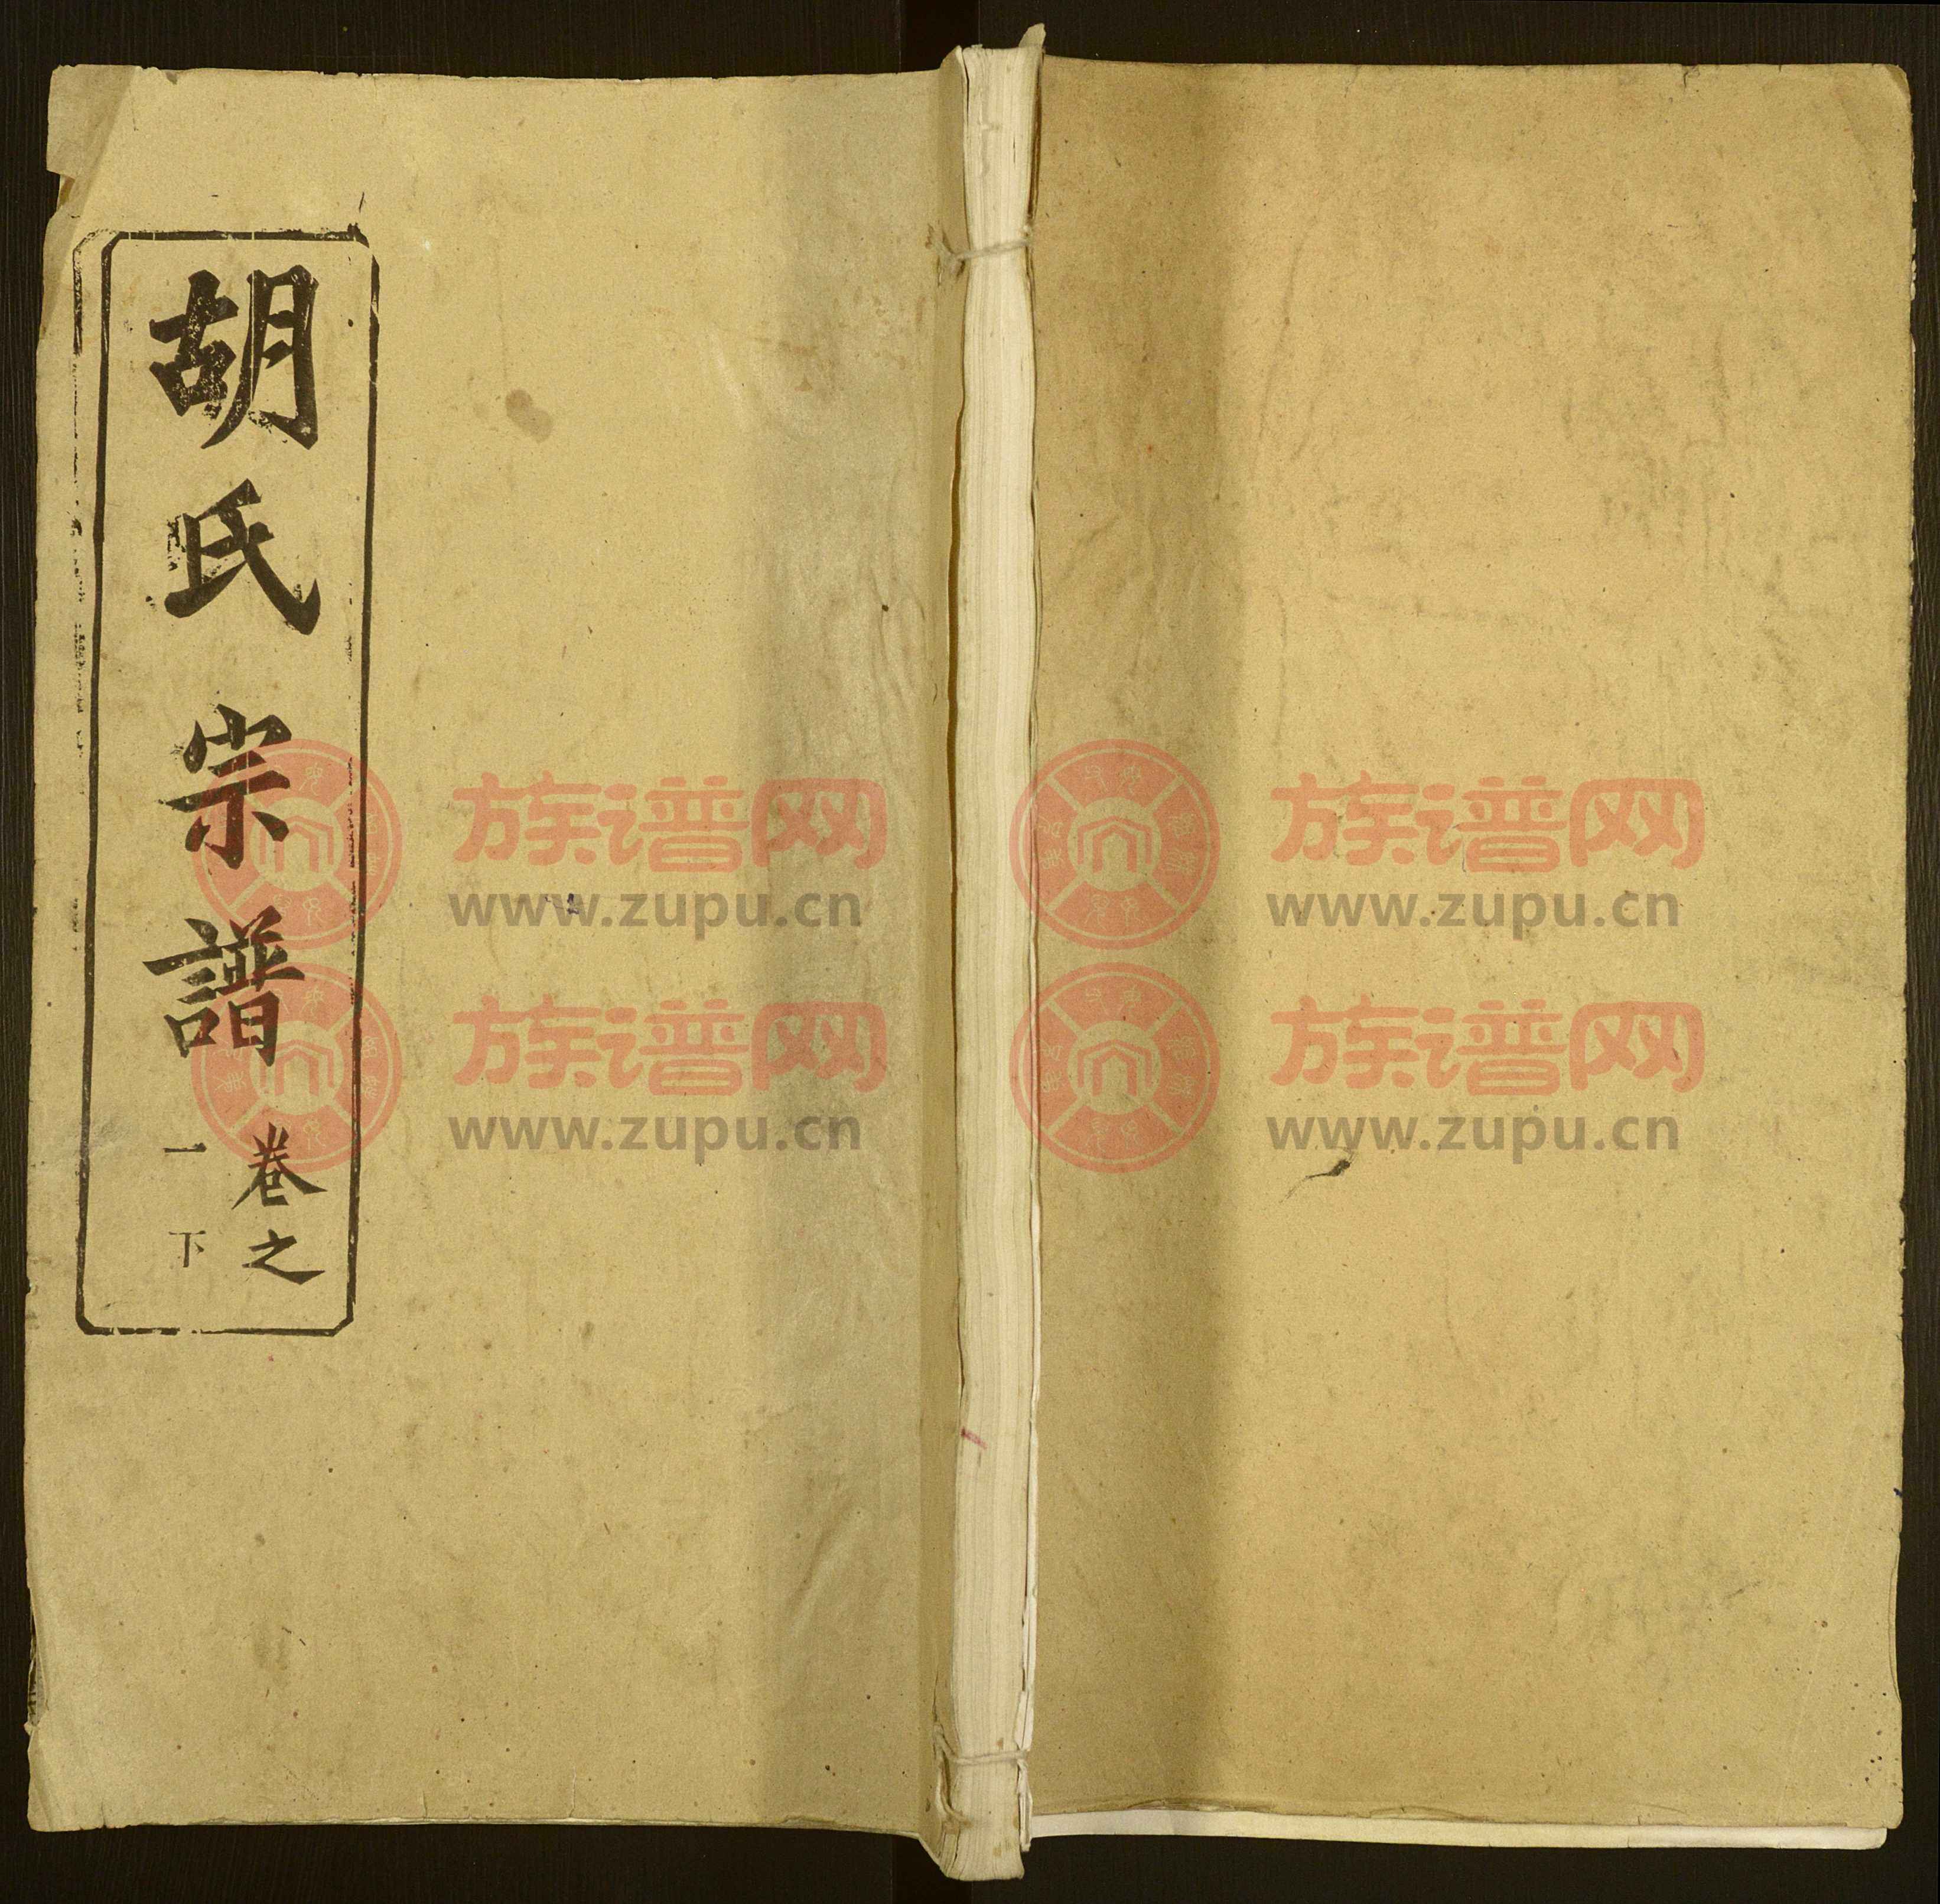 胡氏宗譜
卷之
一下
族谱网
www.zupu.cn
族谱网
www.zupu.cn
族谱网
www.zupu.cn
族谱网
www.zupu.cn